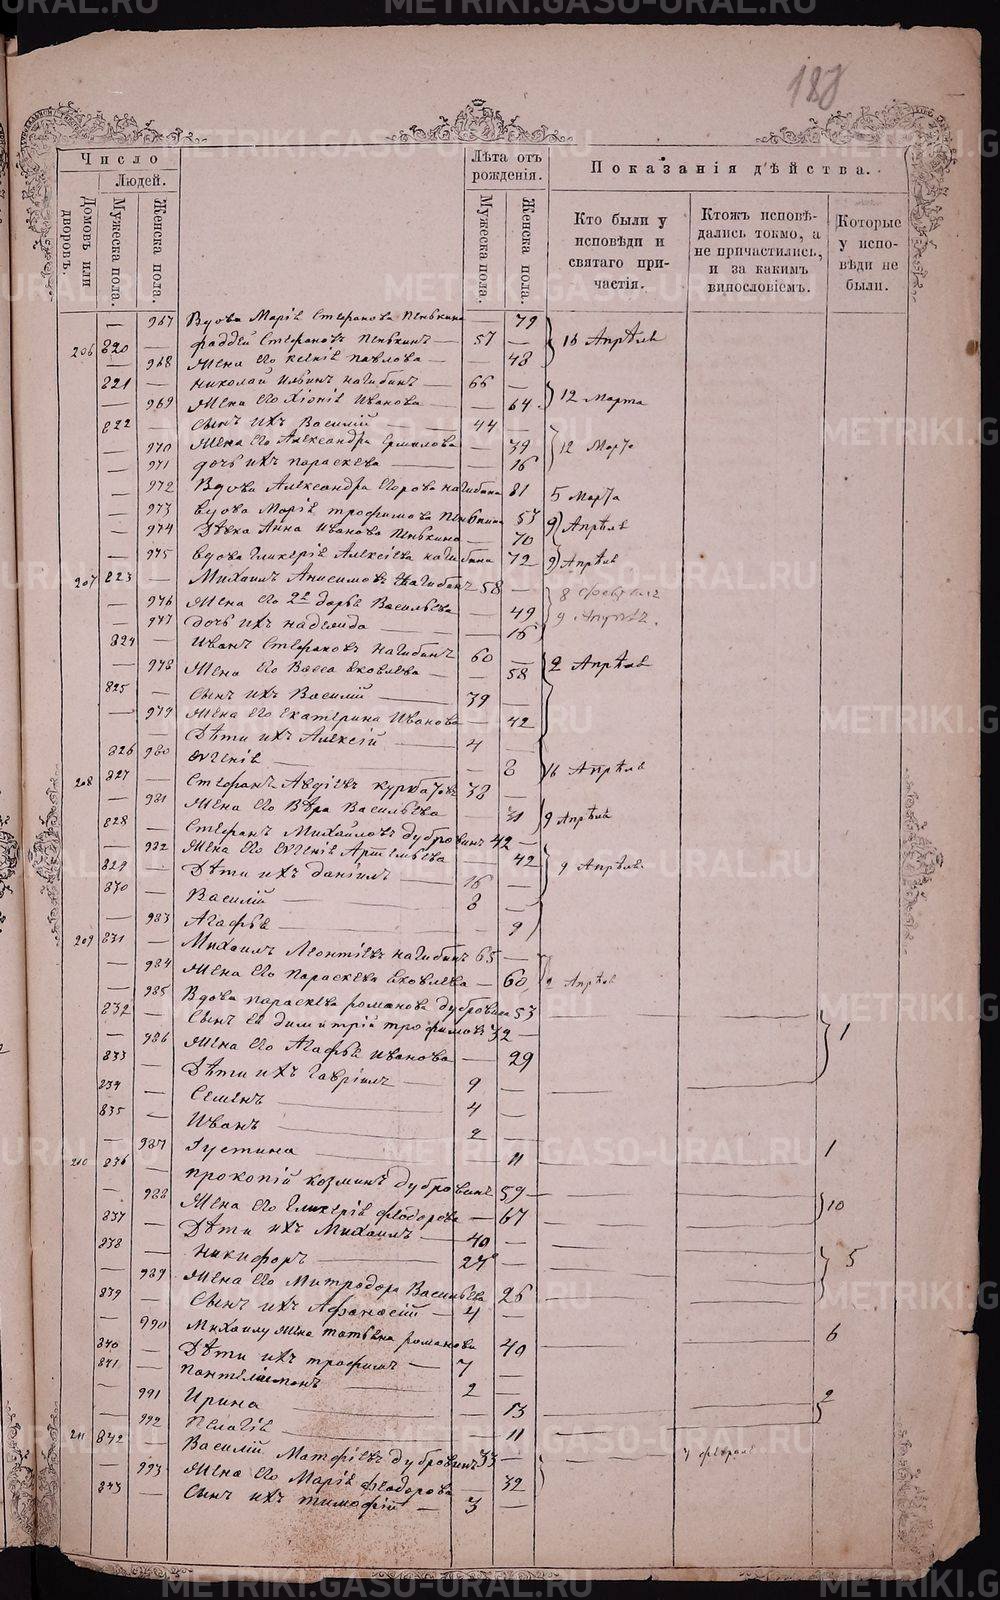 183
Число
Людей.
Домовъ или дворовъ.
Мужеска пола.
Женска пола.
Лѣта отъ рожденія.
Мужеска пола.
Женска пола.
Показанія дѣйства.
Кто были у исповѣди и святаго причастія.
Ктожъ исповѣдались токмо, а не причастились, и за какимъ винословіемъ.
Которые у исповѣди не были.
— 967 Вдова Марія Стефанова Пенькина — 79
206 820 — Фаддей Стефановъ Пенькинъ — 57 — 16 Апрѣля
— 968 Жена его Ксенія Павлова — — 48
821 — Николай Ильинъ Нагибинъ — 66 —
— 969 Жена его Хіонія Иванова — — 64 12 Марта
822 — Сынъ ихъ Василій — 44 —
970 Жена его Александра Ермилова — 39 12 Марта
971 дочь ихъ Параскева — — 16
972 Вдова Александра Егорова Нагибина 81 5 Марта
973 вдова Марія Трофимова Пенькина 53
974 Дѣвка Анна Иванова Пенькина — 70 9 Апрѣля
975 вдова Гликерія Алексіева Нагибина 72 9 Апрѣля
207 823 — Михаилъ Анисимовъ Нагибинъ 58 —
— 976 Жена его 2я Дарья Васильева — 49 8 Февраля
— 977 дочь ихъ Надежда — 16 9 Апрѣля.
824 — Иванъ Стефановъ Нагибинъ 60 —
— 978 Жена его Васса Яковлева — — 58 2 Апрѣля
825 — Сынъ ихъ Василій — 39 —
— 979 Жена его Екатерина Иванова — 42
826 — Дѣти ихъ Алексій — 4 —
980 Евгенія — — 8 16 Апрѣля
208 827 — Стефанъ Авдіевъ Курбатовъ 38 —
— 981 Жена его Вѣра Васильева — 31 9 Апрѣля
828 — Стефанъ Михайловъ Дубровинъ 42 —
— 982 Жена его Евгенія Артемьева — 42 9 Апрѣля
829 — Дѣти ихъ Даніилъ — 16 —
830 — Василій — 8 —
— 983 Агафья — — 9
209 831 — Михаилъ Леонтіевъ Нагибинъ 65 —
— 984 Жена его Параскева Яковлева — 60 9 Апрѣля
— 985 Вдова Параскева Романова Дубровина 53
832 — Сынъ ея Димитрій Трофимовъ 32 — 1
— 986 Жена его Агафья Иванова — 29
833 — Дѣти ихъ Гавріилъ — 9 —
834 — Семенъ — 4 —
835 — Иванъ — 2 —
— 987 Іустина — — 11 1
210 836 — Прокопій Козминъ Дубровинъ 59 —
— 988 Жена его Гликерія Феодорова — 67 10
837 — Дѣти ихъ Михаилъ — 40 —
838 — Никифоръ — 27 —
— 989 Жена его Митродора Васильева 26 5
839 — Сынъ ихъ Афанасій — 4 —
— 990 Михаилу жена Татьяна Романова 40 6
840 — Дѣти ихъ Трофимъ — 7 —
841 — Пантелеимонъ — 2 —
— 991 Ирина — — 13 2
— 992 Пелагія — — 11
211 842 — Василій Матфіевъ Дубровинъ 33 — 7 Февраля
— 993 Жена его Марія Феодорова — 32
843 — Сынъ ихъ Тимофій — 3 —
METRIKI.GASO-URAL.RU